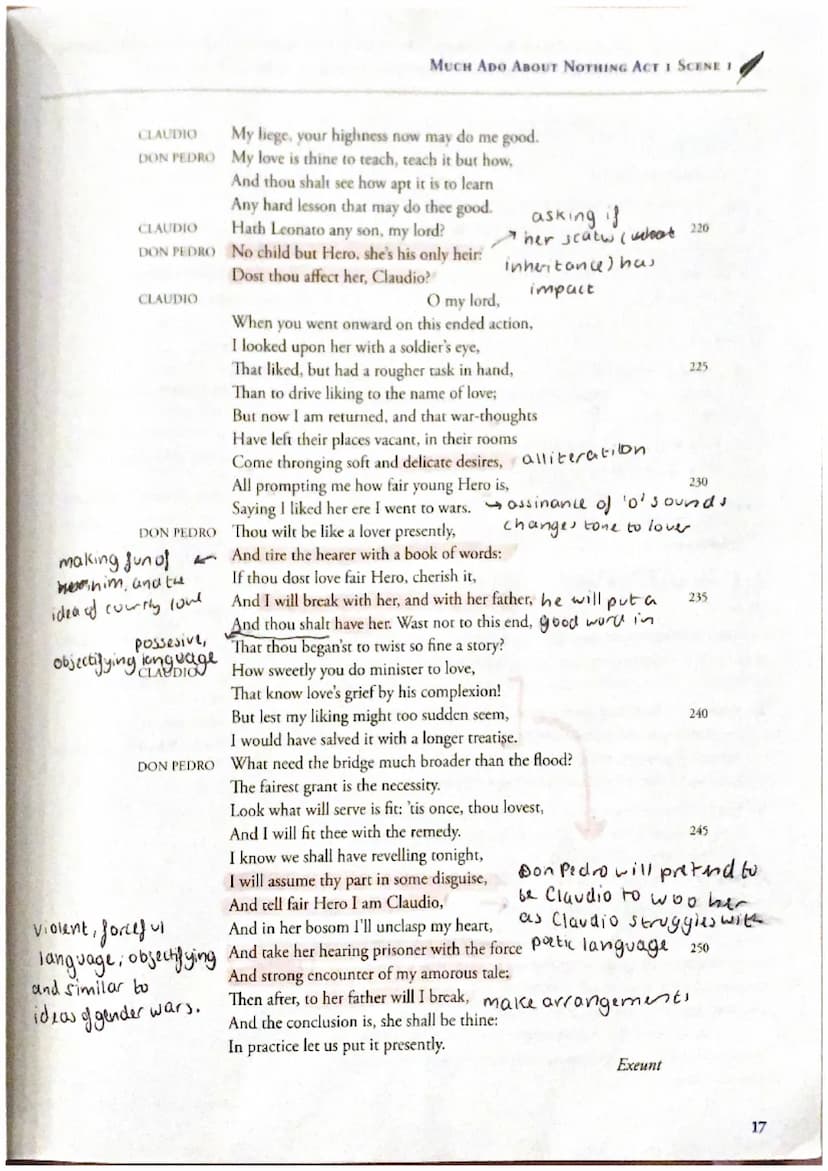 MUCH ADO ABOUT NOTHING ACT 1 SCENE 1
CLAUDIO My liege, your highness now may do me good.
DON PEDRO My love is thine to teach, teach it but how,
And thou shalt see how apt it is to learn
Any hard lesson that may do thee good.
asking if
CLAUDIO Hath Leonato any son, my lord?
her status (what 220
DON PEDRO No child but Hero, she's his only heir:
inheritance) has
Dost thou affect her, Claudio?
impact
CLAUDIO O my lord,
When you went onward on this ended action,
I looked upon her with a soldier's eye,
That liked, but had a rougher task in hand, 225
Than to drive liking to the name of love;
But now I am returned, and that war-thoughts
Have left their places vacant, in their rooms
Come thronging soft and delicate desires, alliteration
All prompting me how fair young Hero is, 230
Saying I liked her ere I went to wars. → assinance of 'o' sounds
changes tone to lover
DON PEDRO Thou wilt be like a lover presently,
And tire the hearer with a book of words:
making fun of
him, and the
idea of courtly love
If thou dost love fair Hero, cherish it,
And I will break with her, and with her father, he will put a 235
And thou shalt have her. Wast not to this end, good word in
possesive,
objectifying language
That thou began'st to twist so fine a story?
CLAUDIO How sweetly you do minister to love,
That know love's grief by his complexion!
But lest my liking might too sudden seem, 240
I would have salved it with a longer treatise.
DON PEDRO What need the bridge much broader than the flood?
The fairest grant is the necessity.
Look what will serve is fit: 'tis once, thou lovest,
And I will fit thee with the remedy. 245
I know we shall have revelling tonight,
I will assume thy part in some disguise,
And tell fair Hero I am Claudio,
Don Pedro will pretend to
be Claudio to woo her
as Claudio struggles with
poetic language
And in her bosom I'll unclasp my heart,
And take her hearing prisoner with the force 250
And strong encounter of my amorous tale:
violent, forceful
language, objectifying
and similar to
ideas of gender wars.
Then after, to her father will I break, make arrangements
And the conclusion is, she shall be thine:
In practice let us put it presently.
Exeunt
17